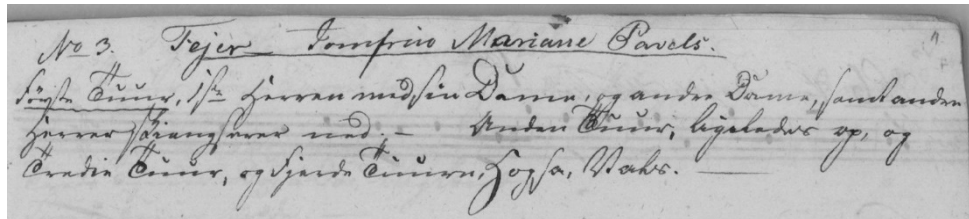 No 3. Fejer Jomfrue Mariane Pavels.
Første Tuur, 1ste Herren med sin Dame, og anden Dame, samt anden
Herrer ned. – Anden Tuur, ligeledes op, og
Tredie Tuur, og Fjerde Tuuren, Hopsa, Vals. —